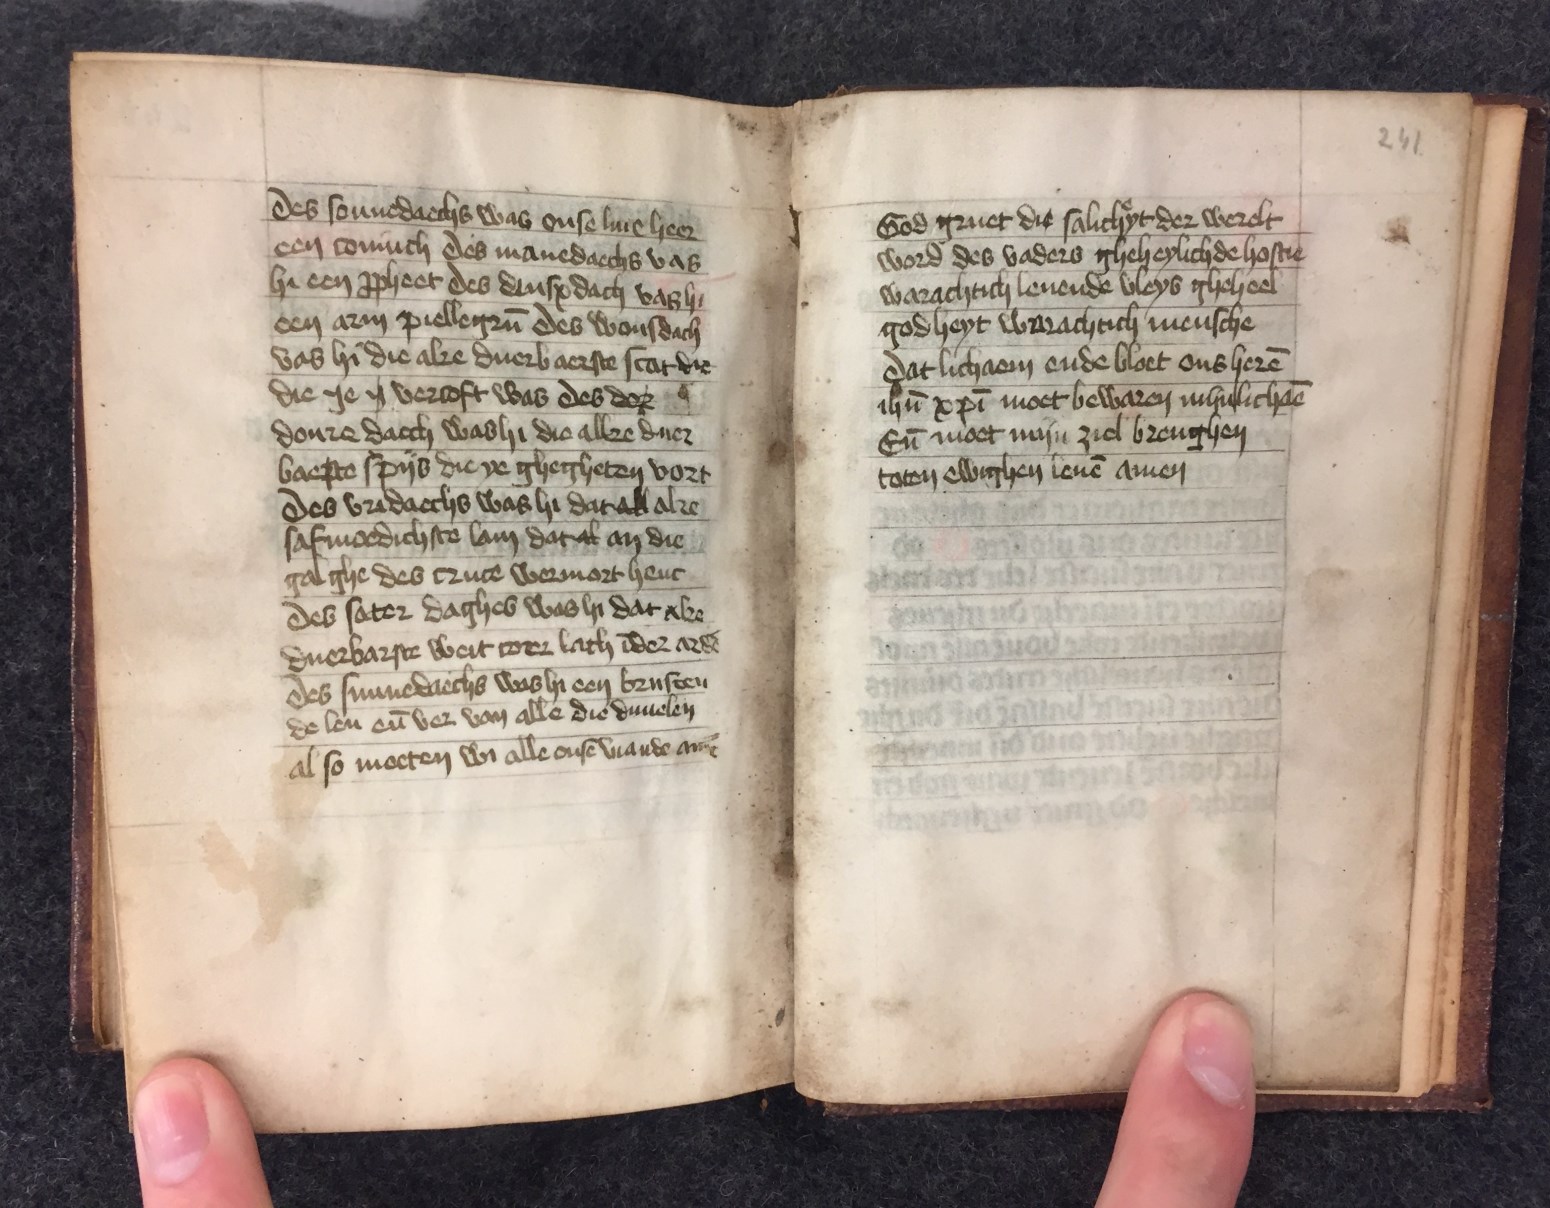 Des sonnedaechs was onse lare heer
een conīnch Des manedaechs vas
hi een ꝓpheet Des dinsxdach vas hi
een arm piellegrū Des wonsdach
vas hi die alre duerbaerste scat die
die ye y vercoft was Des der
donre dacch was hi die allre duer
baerste spijs die ye ghegheten vort
Des vridaechs was hi dat all alre
safmoedichste lam dat al an die
galghe des cruce wermort henc
Des sater daghes was hi dat alre
duerbarste weit coer lach īder ardē
Des sunnedaechs was hi een brusten
de leu eñ ver van alle die duuelen
al so moeten wi alle onse viande amē
241
God gruet die salichÿt der werelt
word des vaders gheheylichde hostie
warachtich leuende vleys gheheel
godheyt warachtich mensche
Dat lichaem ende bloet ons herē
ihū xpī moet bewaren mijn lichāē
Eñ moet mijn ziel brenghen
toten ewighen leuē amen